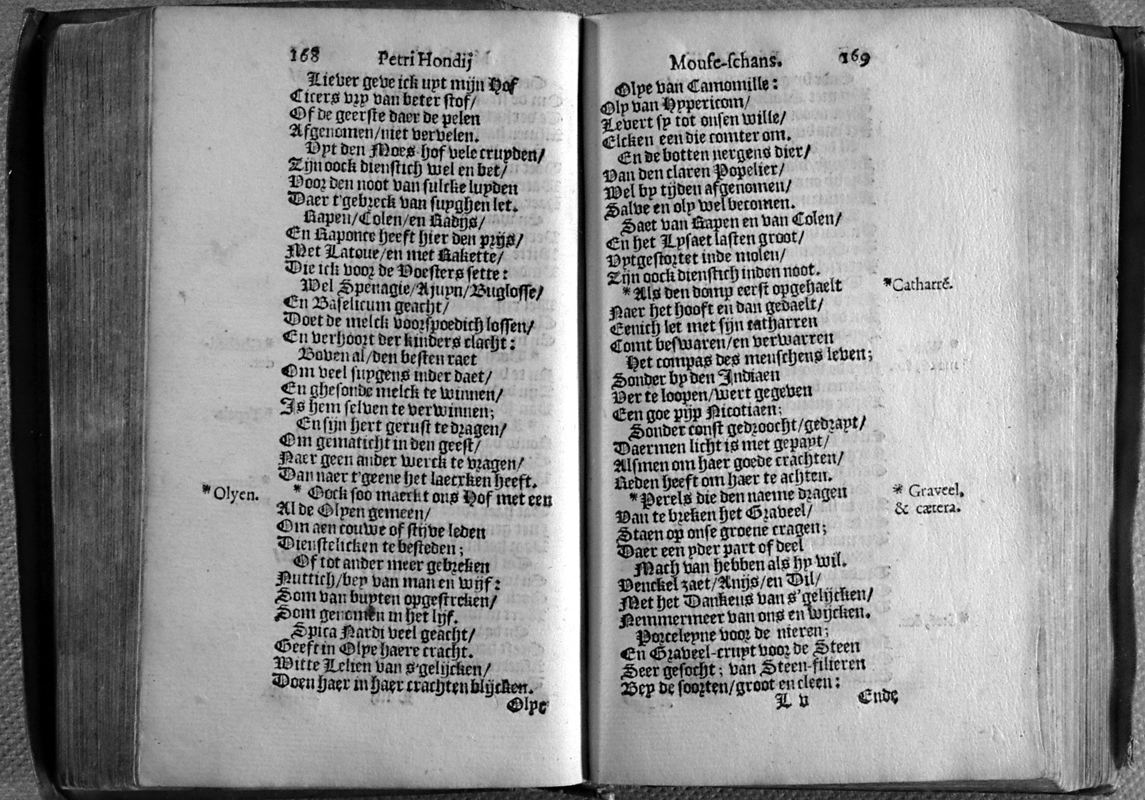 168 Petri Hondij
Liever geve ick uyt mijn Hof
Cicers vry van beter stof/
Of de geerste daer de pelen
Afgenomen/niet vervelen.
Vyt den Moes-hof vele cruyden/
Zijn oock dienstich wel en bet/
Voor den noot van sulcke luyden
Daer t'gebreck van suyghen let.
Rapen/Colen/en Radijs/
En Raponce heeft hier den prijs/
Met Latoue/en met Rakette/
Die ick voor de Voesters sette:
Wel Spenagie/Ajuyn/Buglosse/
En Baselicum geacht/
Doet de melck voorspoedich lossen/
En verhoort der kinders clacht:
Boven al/den besten raet
Om veel suygens inder daet/
En ghesonde melck te winnen/
Is hem selven te verwinnen;
En sijn hert gerust te dragen/
Om gematicht in den geest/
Naer geen ander werck te vragen/
Dan naer t'geene het laecken heeft.
*Olyen.
* Oock soo maeckt ons Hof met een
Al de Olyen gemeen/
Om aen couwe of stijve leden
Dienstelicken te besteden;
Of tot ander meer gebreken
Nuttich/bey van man en wijf:
Som van buyten opgestreken/
Som genomen in het lijf.
Spica Nardi veel geacht/
Geeft in Olye haere cracht.
Witte Lelien van s'gelijcken/
Doen haer in haer crachten blijcken.
Olye
Mouse-schans. 169
Olye van Camomille:
Oly van Hypericom/
Levert sy tot onsen wille/
Elcken een die comter om.
En de botten nergens dier/
Van den claren Popelier/
Wel by tijden afgenomen/
Salve en oly wel becomen.
Saet van Rapen en van Colen/
En het Lysaet lasten groot/
Vytgestortet inde molen/
Zijn oock dienstich inden noot.
*Als den domp eerst opgehaelt
*Catharré.
Naer het hooft en dan gedaelt/
Eenich let met sijn catharren
Comt beswaren/en verwarren
Het compas des menschens leven;
Sonder by den Indiaen
Ver te loopen/wert gegeven
Een goe pijp Nicotiaen;
Sonder const gedroocht/gedrayt/
Daermen licht is met gepayt/
Alsmen om haer goede crachten/
Reden heeft om haer te achten.
*Perels die den naeme dragen
* Graveel,
Van te breken het Graveel/
& cætera.
Staen op onse groene cragen;
Daer een yder part of deel
Mach van hebben als hy wil.
Venckel zaet/Anijs/en Dil/
Met het Dankeus van s'gelijcken/
Nemmermeer van ons en wijcken.
Porceleyne voor de nieren;
En Graveel-cruyt voor de Steen
Seer gesocht; van Steen-filieren
Bey de soorten/groot en cleen:
L v Ende